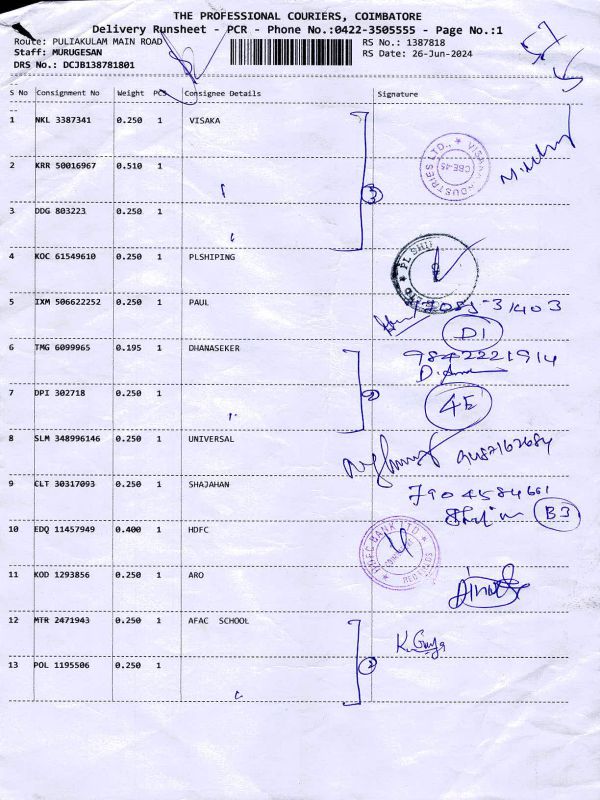 THE PROFESSIONAL COURIERS, COIMBATORE
Delivery Runsheet - PCR - Phone No.:0422-3505555 - Page No.:1
Route: PULIAKULAM MAIN ROAD RS No.: 1387818
Staff: MURUGESAN RS Date: 26-Jun-2024
DRS No.: DCJB138781801
S No Consignment No Weight PCS Consignee Details Signature
1 NKL 3387341 0.250 1 VISAKA
2 KRR 50016967 0.510 1
3 DDG 803223 0.250 1
3
4 KOC 61549610 0.250 1 PLSHIPING
5 IXM 506622252 0.250 1 PAUL
D1
6 TMG 6099965 0.195 1 DHANASEKER
9842221914
7 DPI 302718 0.250 1
2
4E
8 SLM 348996146 0.250 1 UNIVERSAL
9 CLT 30317093 0.250 1 SHAJAHAN
7904584661
B3
10 EDQ 11457949 0.400 1 HDFC
HDFC BANK LTD
11 KOD 1293856 0.250 1 ARO
12 MTR 2471943 0.250 1 AFAC SCHOOL
13 POL 1195506 0.250 1
2